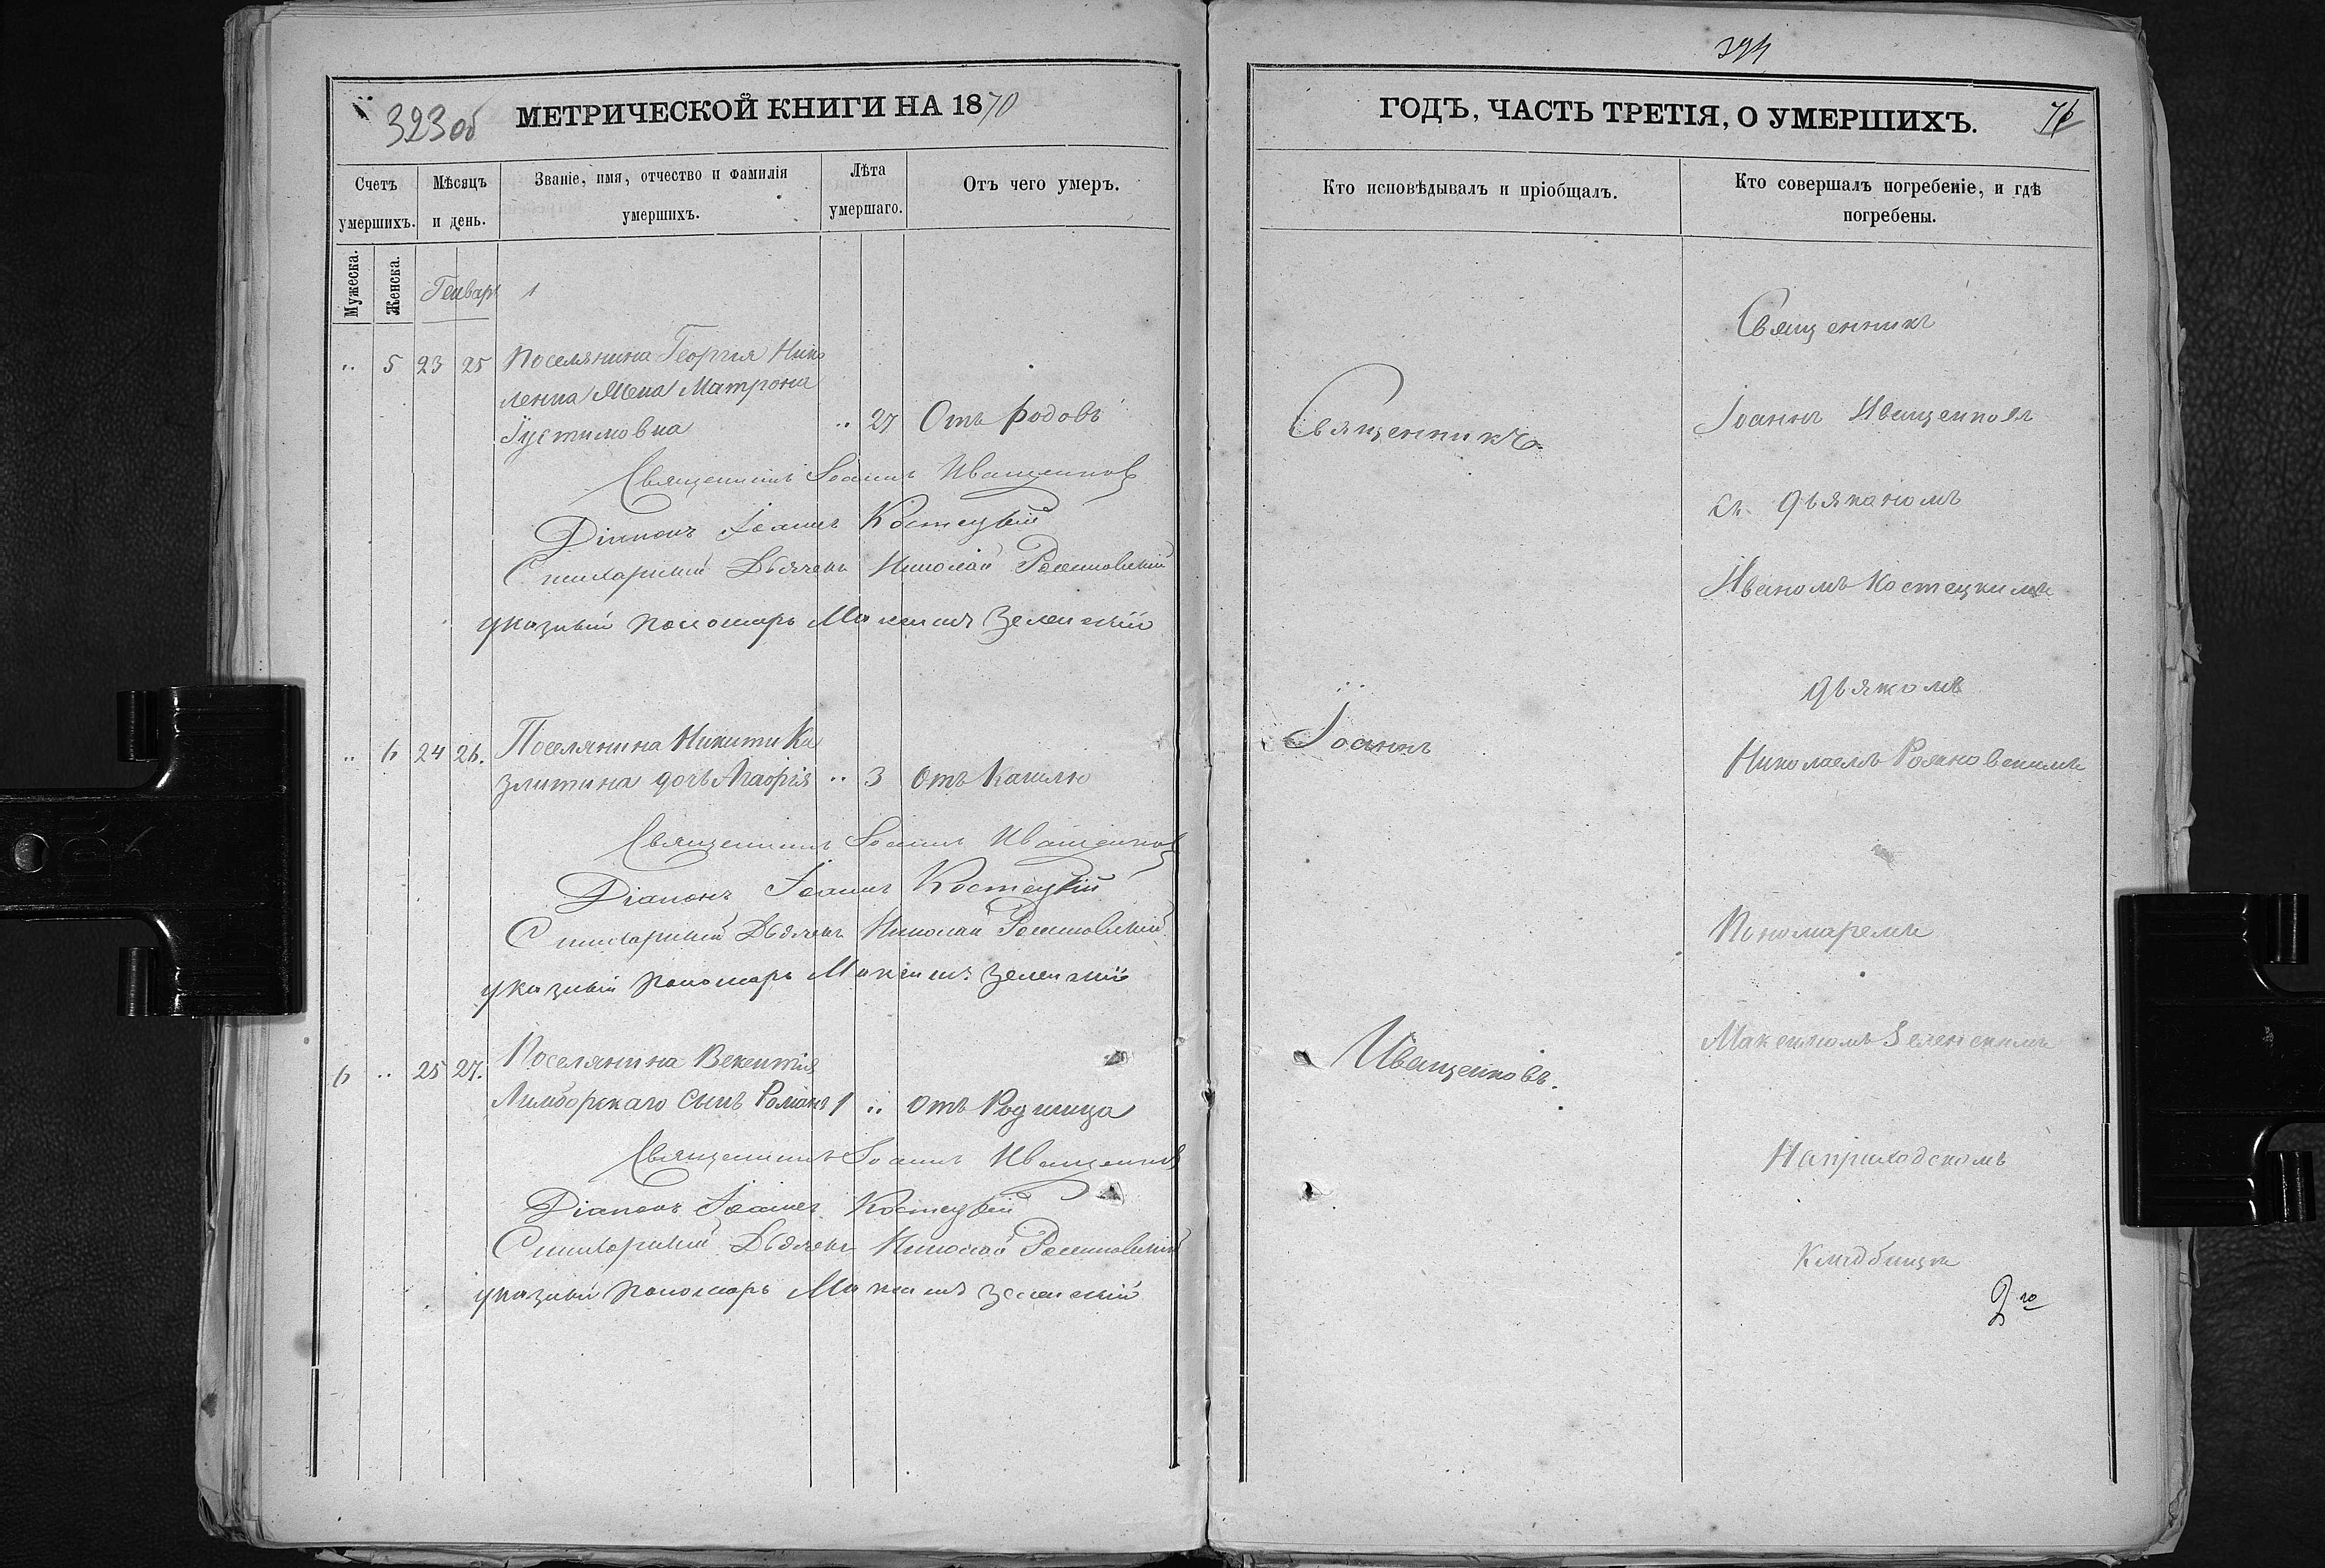 323 об
МЕТРИЧЕСКОЙ КНИГИ НА 1870
Счетъ умершихъ.
Мѣсяцъ и день.
Званіе, имя, отчество и фамилія умершихъ.
Лѣта умершаго.
Отъ чего умеръ.
Мужеска.
Женска.
Генварь 1
" 5 23 25 Поселянина Георгія Нико
ленка жена Матрона
Іустимовна " 27 Отъ родовъ
Священникъ Іоаннъ Иващенковъ
Діаконъ Іоаннъ Костецкій
Стихарный Дьячекъ Николай
указный пономарь Максимъ Зеленскій
" 6 24 26. Поселянина Никити Ка
злитина дочь Агафія " 3 Отъ Кашлю
Священникъ Іоаннъ Иващенковъ
Діаконъ Іоаннъ Костецкій
Стихарный Дьячекъ Николай
указный пономарь Максимъ Зеленскій
6 " 25 27. Поселянина Викентія
Лимборскаго сынъ Романъ 1 " отъ Родимца
Священникъ Іоаннъ Иващенковъ
Діаконъ Іоаннъ Костецкій
Стихарный Дьячекъ Николай
указный пономарь Максимъ Зеленскій
ГОДЪ, ЧАСТЬ ТРЕТІЯ, О УМЕРШИХЪ.
Кто исповѣдывалъ и пріобщалъ.
Кто совершалъ погребеніе, и гдѣ
погребены.
Священникъ
Іоаннъ
Иващенковъ.
Священникъ
Іоаннъ Иващенковъ
съ дьякономъ
Иваномъ Костецкимъ
дьякомъ
Николаемъ
Пономаремъ
Максимомъ Зеленскимъ
На приходскомъ
кладбищѣ
2го